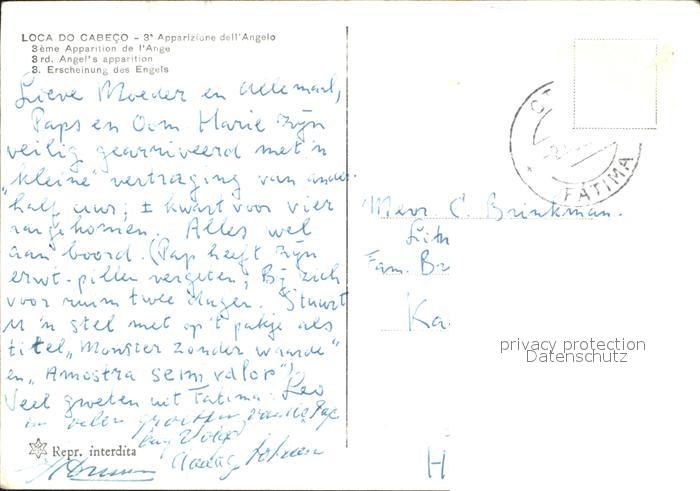 LOCA DO CABEÇO - 3ª Apparizione dell'Angelo
3ème Apparition de l'Ange
3rd. Angel's apparition
3. Erscheinung des Engels
Lieve Moeder en allemaal,
Paps en Oom Harie zijn
veilig gearriveerd met 'n
"kleine" vertraging van ander-
half uur; ± kwart voor vier
aangekomen. Alles wel
aan boord. (Pap heeft zijn
erwt-pillen vergeten; Bij zich
voor ruim twee dagen. Stuurt
U 'n stel met op 't pakje als
titel "Monster zonder waarde"
en "Amostra sem valor")
Veel groeten uit Fatima. Leo
en vele groetjes van de Pap
Repr. interdita
FÁTIMA
Mevr C. Brinkman.
Fam. Br
Ka
privacy protection
Datenschutz
H